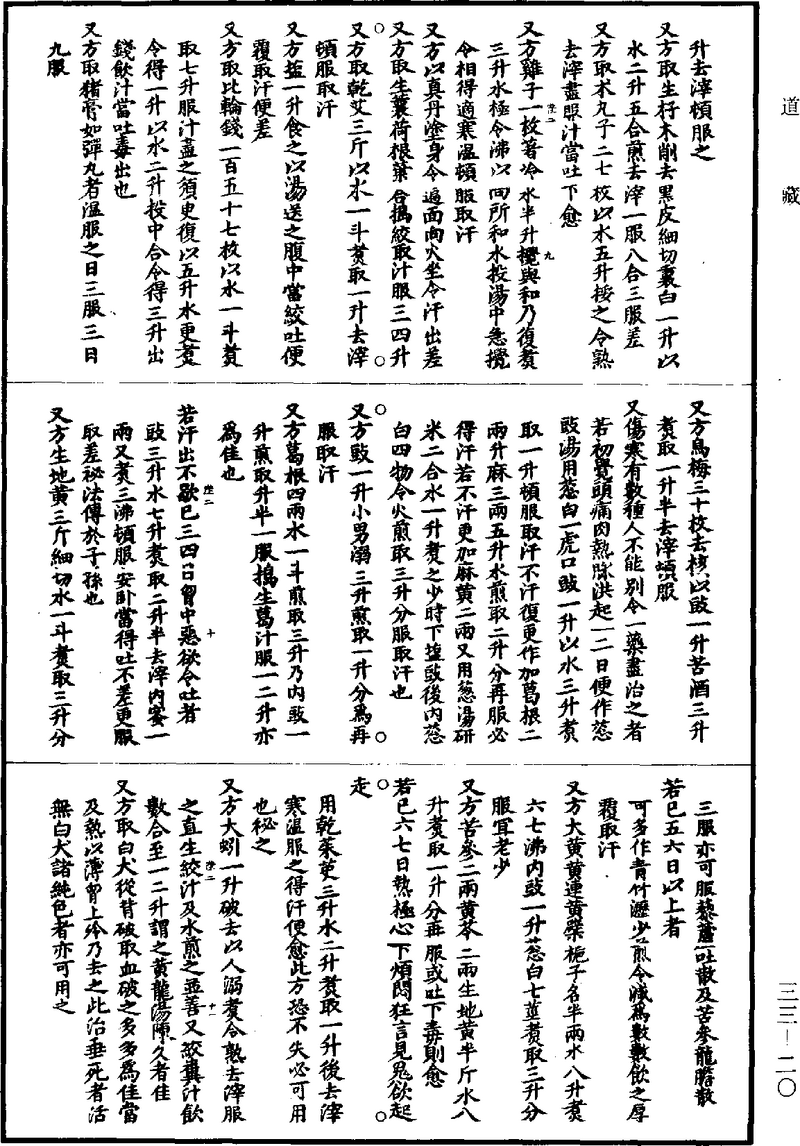 道藏
升去滓頓服之
又方取生梓木削去黑皮細切裏白一升以
水二升五合煎去滓一服八合三服差
又方取朮丸子二七枚以水五升挼之令熟
去滓盡服汁當吐下愈
又方雞子一枚著冷水半升攪與和乃復煮
三升水極令沸以向所和水投湯中急攪
令相得適寒溫頓服取汗
又方以真丹塗身令遍面向火坐令汗出差
又方取生蘘荷根葉合擣絞取汁服三四升
又方取乾艾三斤以水一斗煮取一升去滓
頓服取汗
又方盬一升食之以湯送之腹中當絞吐便
覆取汗便差
又方取比輪錢一百五十七枚以水一斗煮
取七升服汁盡之須臾復以五升水更煮
令得一升以水二升投中合令得三升出
錢飲汁當吐毒出也
又方取猪膏如彈丸者溫服之日三服三日
九服
又方烏梅三十枚去核以豉一升苦酒三升
煮取一升半去滓頓服
又傷寒有數種人不能別令一藥盡治之者
若初覺頭痛肉熱脉洪起一二日便作葱
豉湯用葱白一虎口豉一升以水三升煮
取一升頓服取汗不汗復更作加葛根二
兩升麻三兩五升水煎取二升分再服必
得汗若不汗更加麻黃二兩又用葱湯研
米二合水一升煮之少時下盬豉後內葱
白四物令火煎取三升分服取汗也
又方豉一升小男溺三升煎取一升分爲再
服取汗
又方葛根四兩水一斗煎取三升乃內豉一
升煎取升半一服擣生葛汁服一二升亦
爲佳也
若汗出不歇已三四日胷中惡欲令吐者
豉三升水七升煮取二升半去滓內蜜一
兩又煮三沸頓服安卧當得吐不差更服
取差祕法傳於子孫也
又方生地黃三斤細切水一斗煮取三升分
三服亦可服藜蘆吐散及苦參龍膽散
若已五六日以上者
可多作青竹瀝少煎令減爲數數飲之厚
覆取汗
又方大黃黃連黃蘗梔子各半兩水八升煮
六七沸內豉一升葱白七莖煮取三升分
服宜老少
又方苦參二兩黃芩二兩生地黃半斤水八
升煮取一升分再服或吐下毒則愈
若已六七日熱極心下煩悶狂言見鬼欲起
走
用乾茱萸三升水二升煮取一升後去滓
寒溫服之得汗便愈此方恐不失必可用
也秘之
又方大蚓一升破去以人溺煮令熟去滓服
之直生絞汁及水煎之並善又絞糞汁飲
數合至一二升謂之黃龍湯陳久者佳
又方取白犬從背破取血破之多多爲佳當
及熱以薄胷上冷乃去之此治垂死者活
無白犬諸純色者亦可用之
三三一二〇